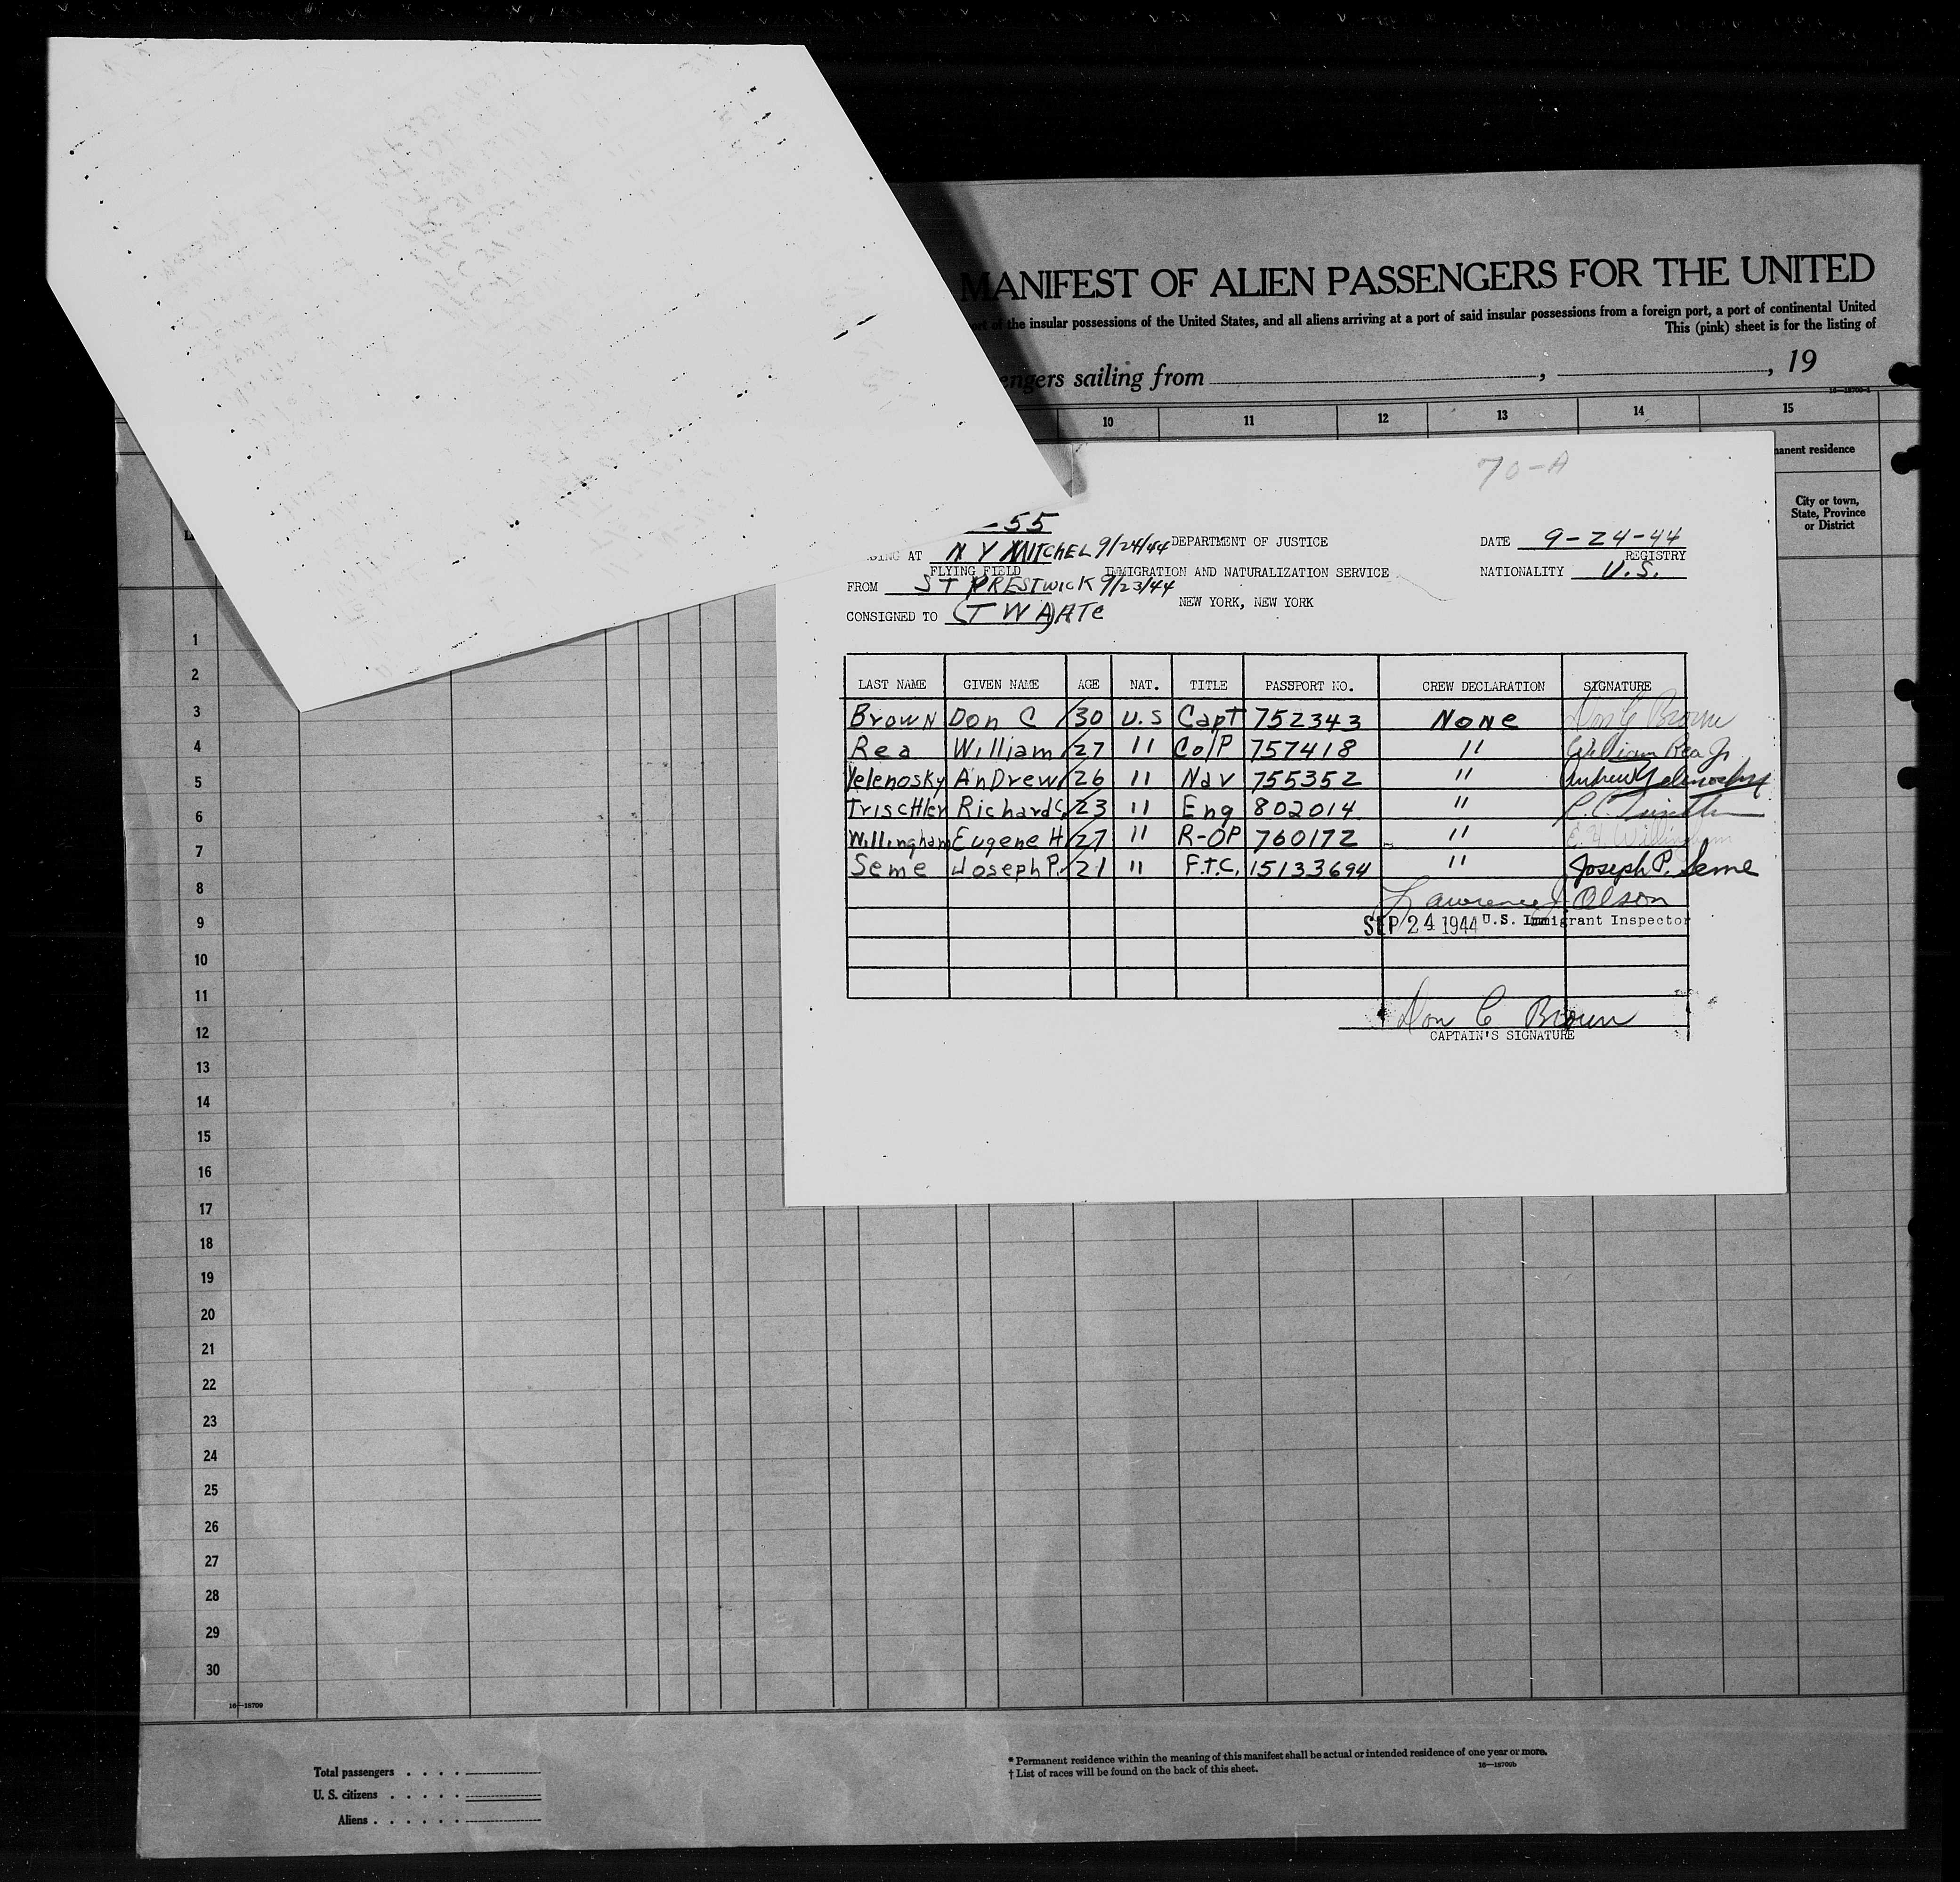 MANIFEST OF ALIEN PASSENGERS FOR THE UNITED
of the insular possessions of the United States, and all aliens arriving at a port of said insular possessions from a foreign port, a port of continental United
This (pink) sheet is for the listing of
sailing from , , 19
16—18709-1
10 11 12 13 14 15
residence
City or town,
State, Province
or District
70-A
-55
AT N Y MITCHEL 9/24/44 DEPARTMENT OF JUSTICE DATE 9-24-44
FLYING FIELD IMMIGRATION AND NATURALIZATION SERVICE REGISTRY
NATIONALITY U.S.
FROM ST PRESTWICK 9/23/44
NEW YORK, NEW YORK
CONSIGNED TO (TWA) ATC
LAST NAME GIVEN NAME AGE NAT. TITLE PASSPORT NO. CREW DECLARATION SIGNATURE
Brown Don C 30 U.S Capt 752343 None Don C Brown
Rea William 27 " Co/P 757418 " William Rea Jr
Yelenosky AnDrew 26 " Nav 755352 " Andrew Yelenosky
TriscHler Richard C. 23 " Eng 802014 "
Willingham Eugene H 27 " R-OP 760172 " E. H Willingham
Seme Joseph P. 21 " F.T.C. 15133694 " Joseph P. Seme
Lawrence J Olson
SEP 24 1944 U.S. Immigrant Inspector
Don C Brown
CAPTAIN'S SIGNATURE
1
2
3
4
5
6
7
8
9
10
11
12
13
14
15
16
17
18
19
20
21
22
23
24
25
26
27
28
29
30
16—18709
Total passengers . . . .
U. S. citizens . . . . .
Aliens . . . . . .
* Permanent residence within the meaning of this manifest shall be actual or intended residence of one year or more.
† List of races will be found on the back of this sheet.
16—18709b